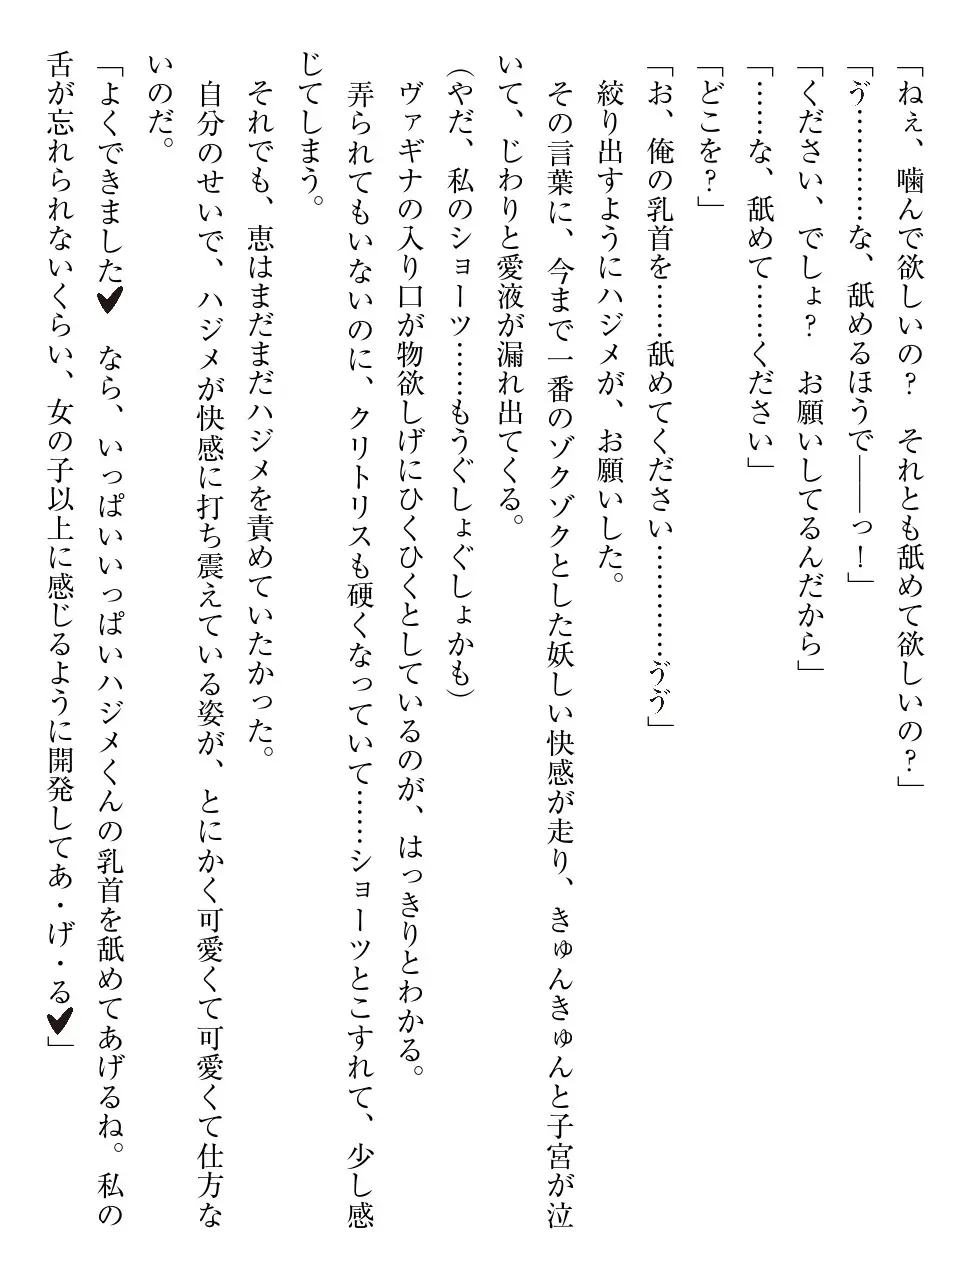 「ねぇ、噛んで欲しいの？　それとも舐めて欲しいの？」
「ゔ…………な、舐めるほうで――っ！」
「ください、でしょ？　お願いしてるんだから」
「……な、舐めて……ください」
「どこを？」
「お、俺の乳首を……舐めてください…………ゔゔ」
　絞り出すようにハジメが、お願いした。
　その言葉に、今まで一番のゾクゾクとした妖しい快感が走り、きゅんきゅんと子宮が泣
いて、じわりと愛液が漏れ出てくる。
（やだ、私のショーツ……もうぐしょぐしょかも）
　ヴァギナの入り口が物欲しげにひくひくとしているのが、はっきりとわかる。
　弄られてもいないのに、クリトリスも硬くなっていて……ショーツとこすれて、少し感
じてしまう。
　それでも、恵はまだまだハジメを責めていたかった。
　自分のせいで、ハジメが快感に打ち震えている姿が、とにかく可愛くて可愛くて仕方な
いのだ。
「よくできました♥　なら、いっぱいいっぱいハジメくんの乳首を舐めてあげるね。私の
舌が忘れられないくらい、女の子以上に感じるように開発してあ・げ・る♥」